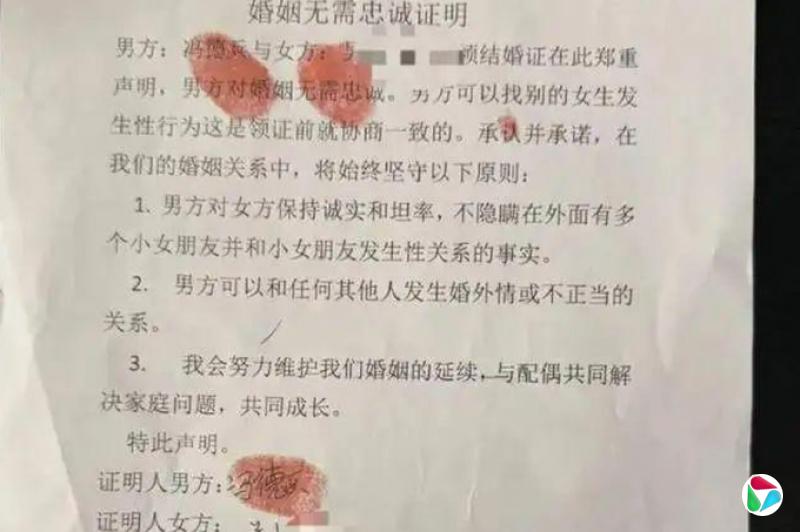 婚姻无需忠诚证明
男方：冯德兵与女方： 领结婚证在此郑重
声明，男方对婚姻无需忠诚。男方可以找别的女生发
生性行为这是领证前就协商一致的。承认并承诺，在
我们的婚姻关系中，将始终坚守以下原则：
1. 男方对女方保持诚实和坦率，不隐瞒在外面有多
个小女朋友并和小女朋友发生性关系的事实。
2. 男方可以和任何其他人发生婚外情或不正当的
关系。
3. 我会努力维护我们婚姻的延续，与配偶共同解
决家庭问题，共同成长。
特此声明。
证明人男方：冯德兵
证明人女方：